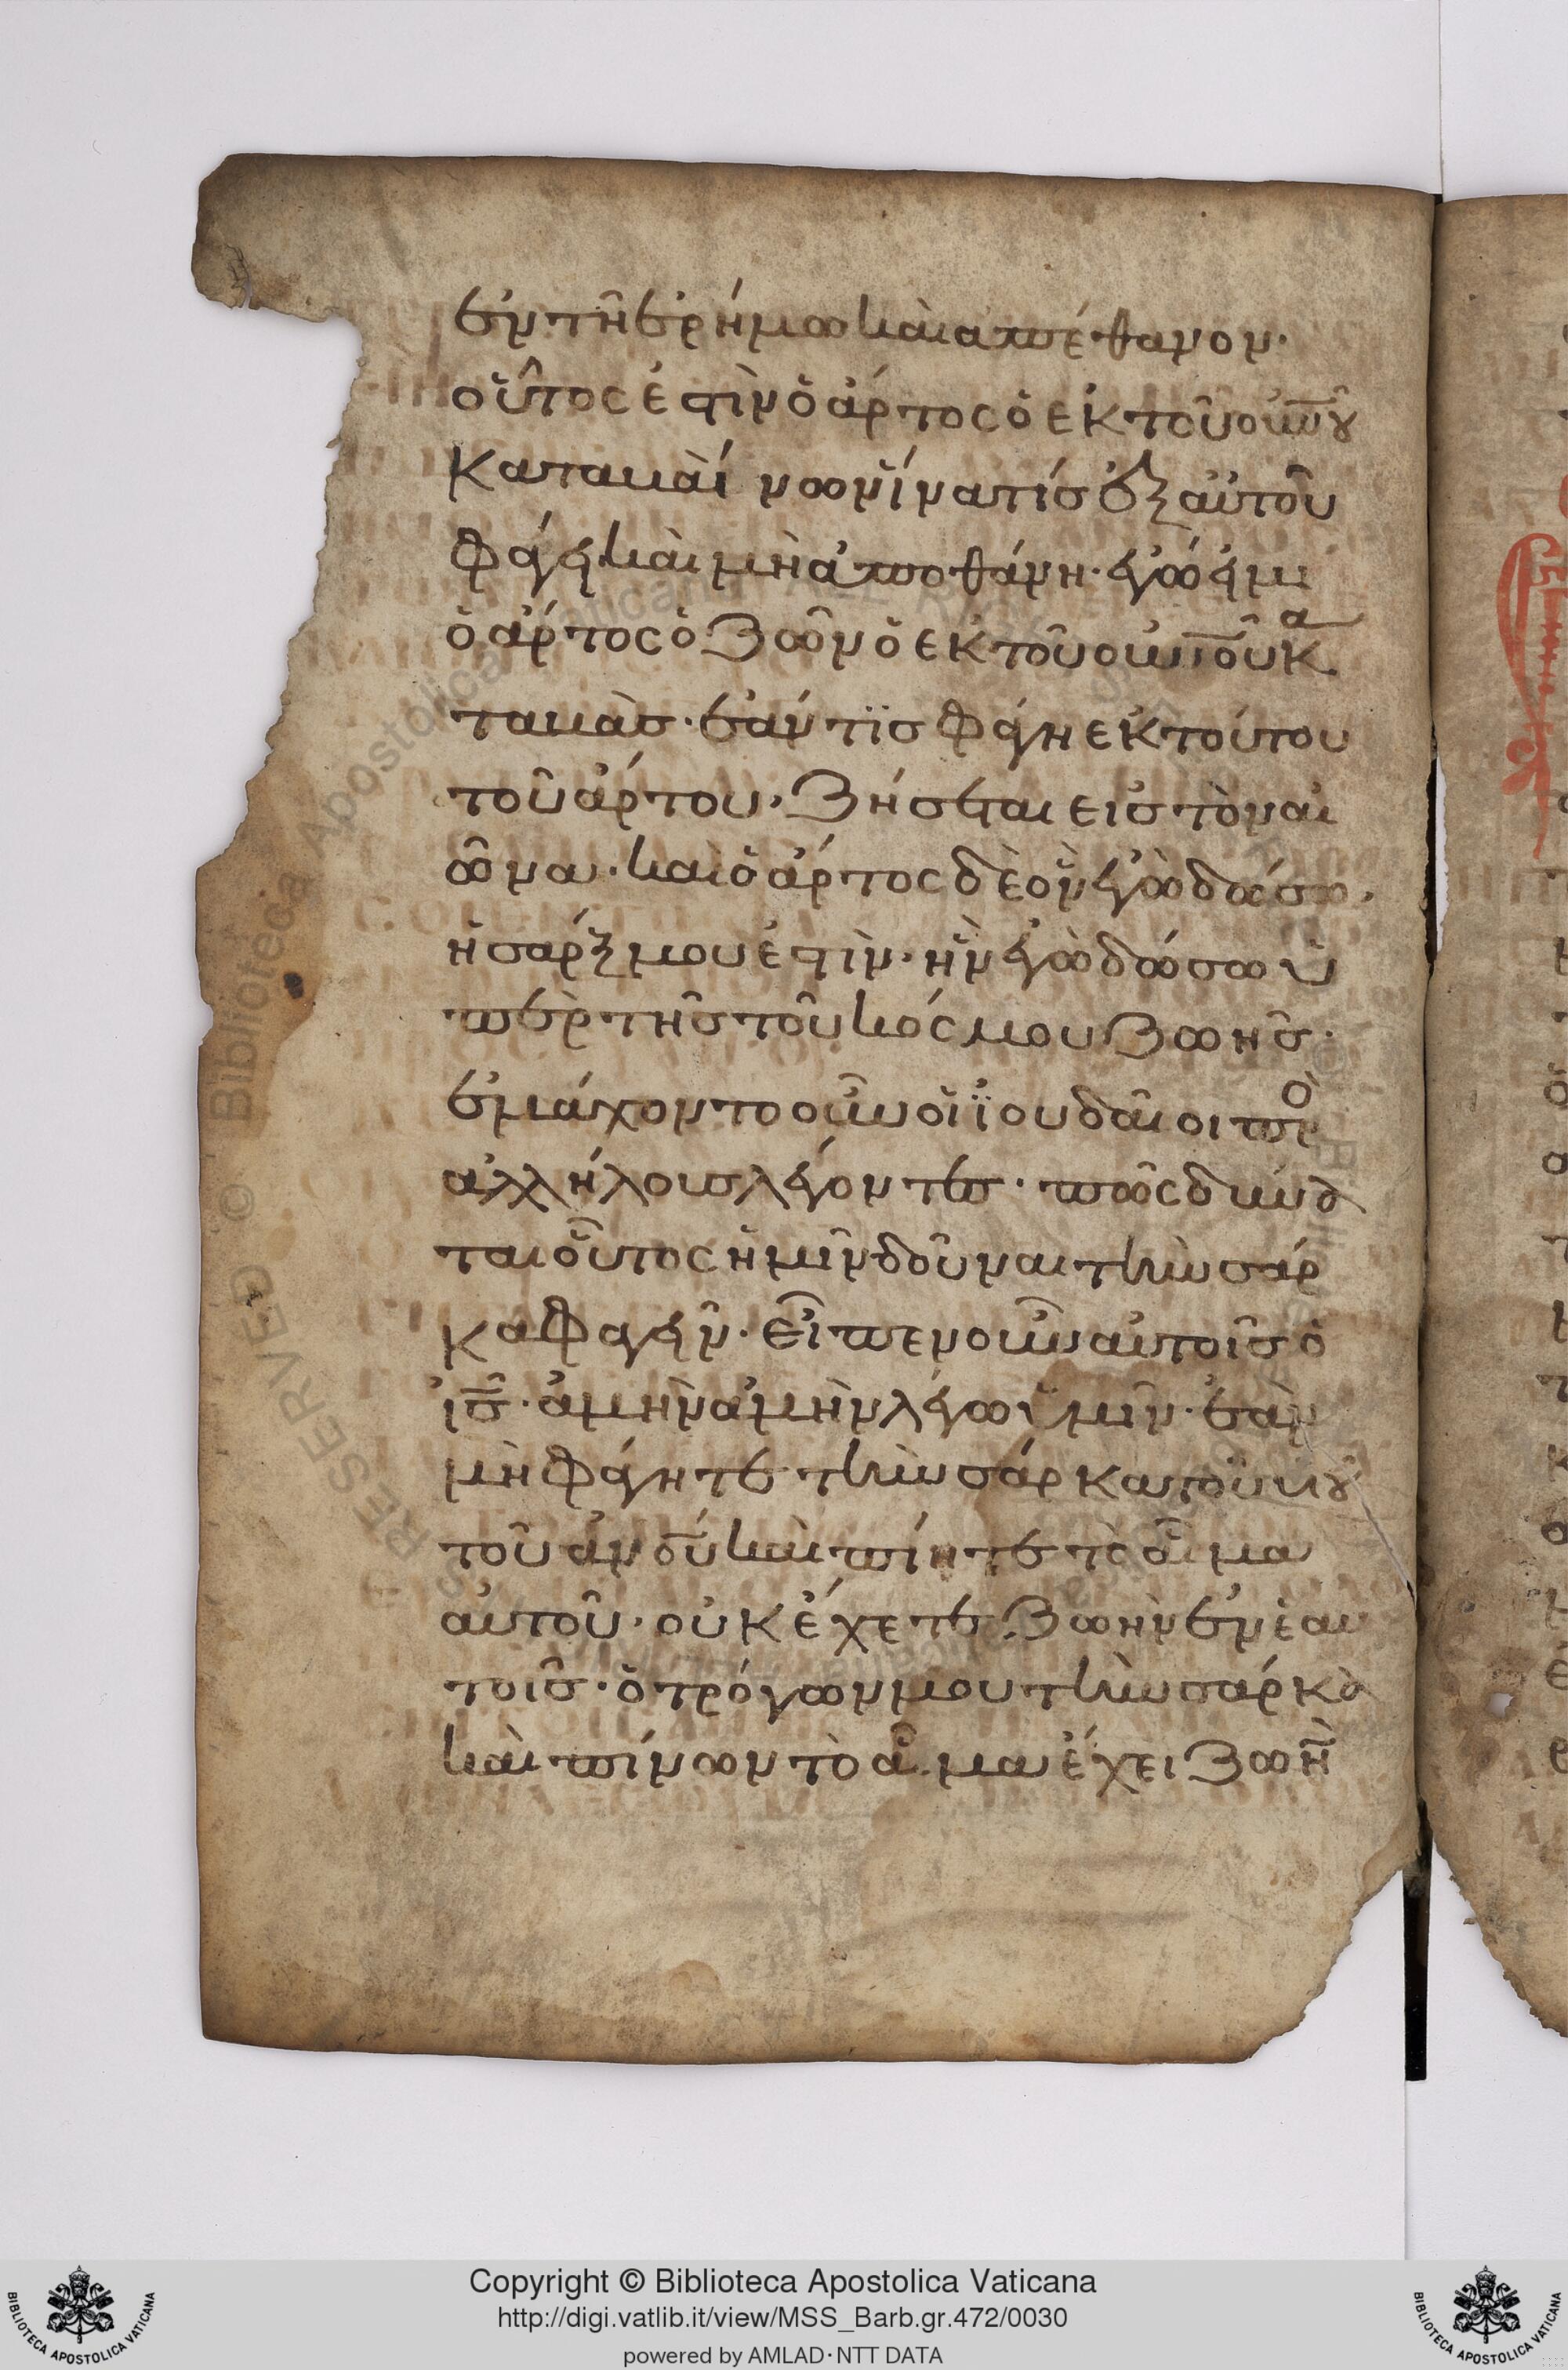 ἐν τῆ ἐρήμω καὶ ἀπέθανον·
οὗτος ἐστὶν ὁ ἄρτος ὁ ἐκ τοῦ οὐνου
καταβαίνων ἵνα τίς ἐξ αὐτοῦ
φάγει καὶ μὴ ἀποθάνη· ἐγώ εἰμι
ὁ ἄρτος ὁ ζῶν ὁ ἐκ τοῦ οὐνοῦ κα
ταβάς· ἐάν τϊς φάγη ἐκ τούτου
τοῦ ἄρτου, ζήσεται εἰς τὸν αἰ
ῶνα· καὶ ὁ ἄρτος δὲ ὃν ἐγὼ δώσω,
ἡ σάρξ μου ἐστὶν· ἣν ἐγὼ δώσω ὑ
πὲρ τῆς τοῦ κόσμου ζωῆς·
ἐμάχοντο οὖν οἱ ϊουδαῖοι πρὸ
ἀλλήλους λέγοντες· πῶς δύνα
ται οὗτος ἡμῖν δοῦναι τὴν σάρ
κα φαγεῖν· εἶπεν οὖν αὐτοῖς ὁ
ἰς· ἀμὴν ἀμὴν λέγω ὑμῖν· ἐὰν
μὴ φάγητε τὴν σάρκα τοῦ υἱου
τοῦ ἀνου καὶ πίητε τὸ αἷμα
αὐτοῦ, οὐκ ἔχετε ζωὴν ἐν ἑαυ
τοῖς· ὁ τρόγων μου τὴν σάρκα
καὶ πίνων τὸ αἷμα ἔχει ζωὴ
Copyright © Biblioteca Apostolica Vaticana
http://digi.vatlib.it/view/MSS_Barb.gr.472/0030
powered by AMLAD·NTT DATA